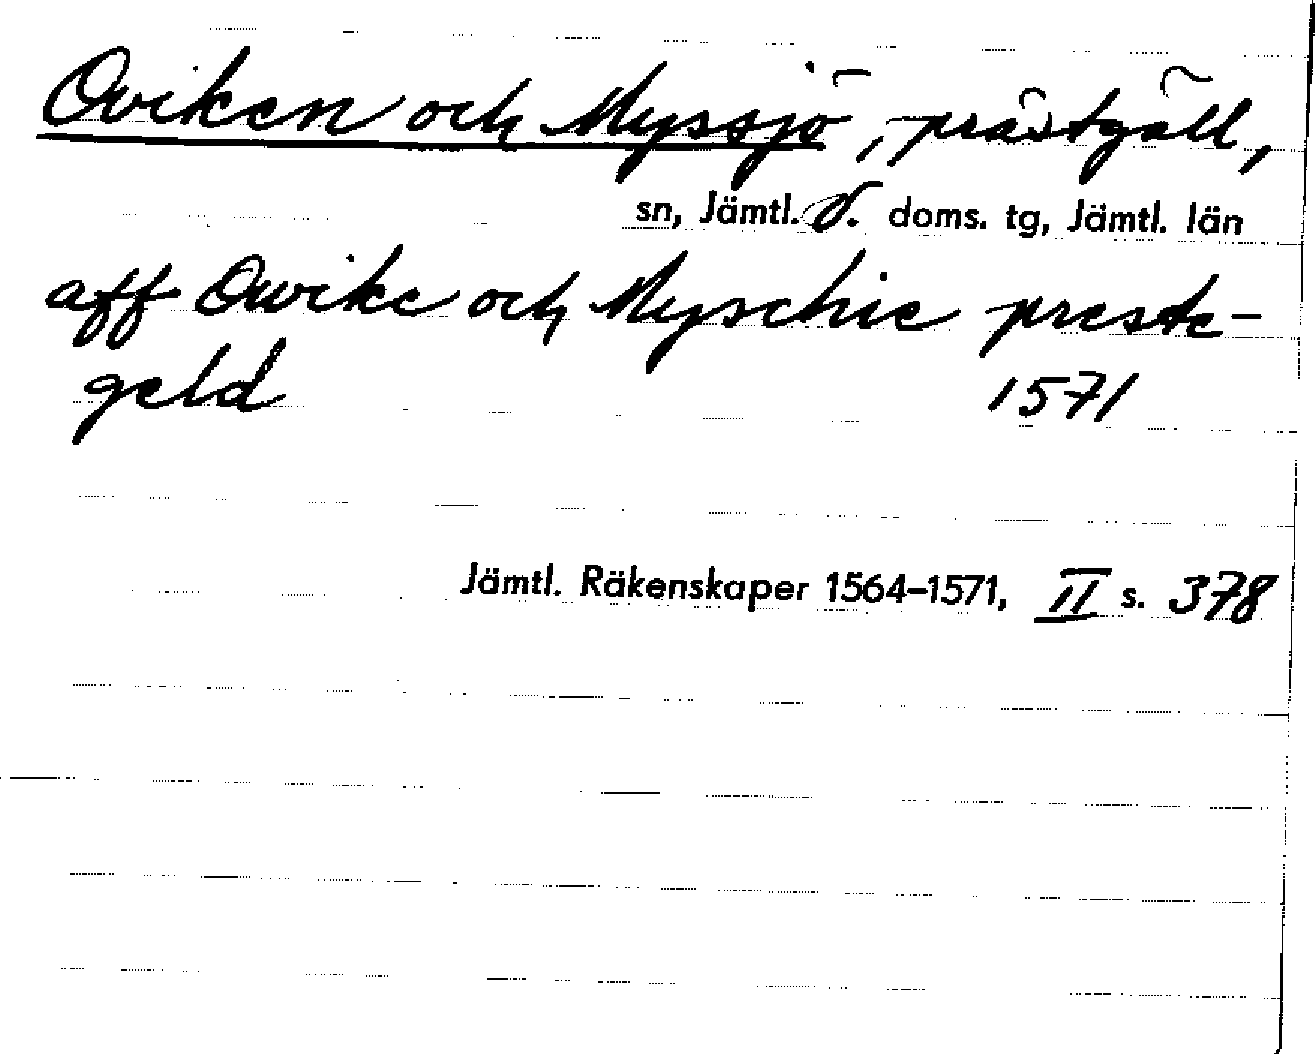 Oviken och Myssjö, prästgäll,
sn, Jämtl. v. doms. tg, Jämtl. län
aff Owike och Myschie preste-
geld 1571
Jämtl. Räkenskaper 1564–1571, II s. 378